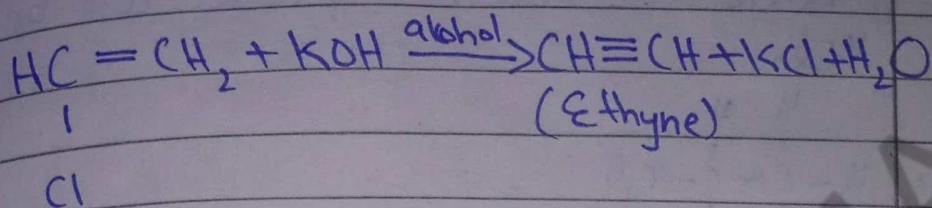 HC = CH₂ + KOH alcohol→ CH≡CH + KCl + H₂O
| (Ethyne)
Cl